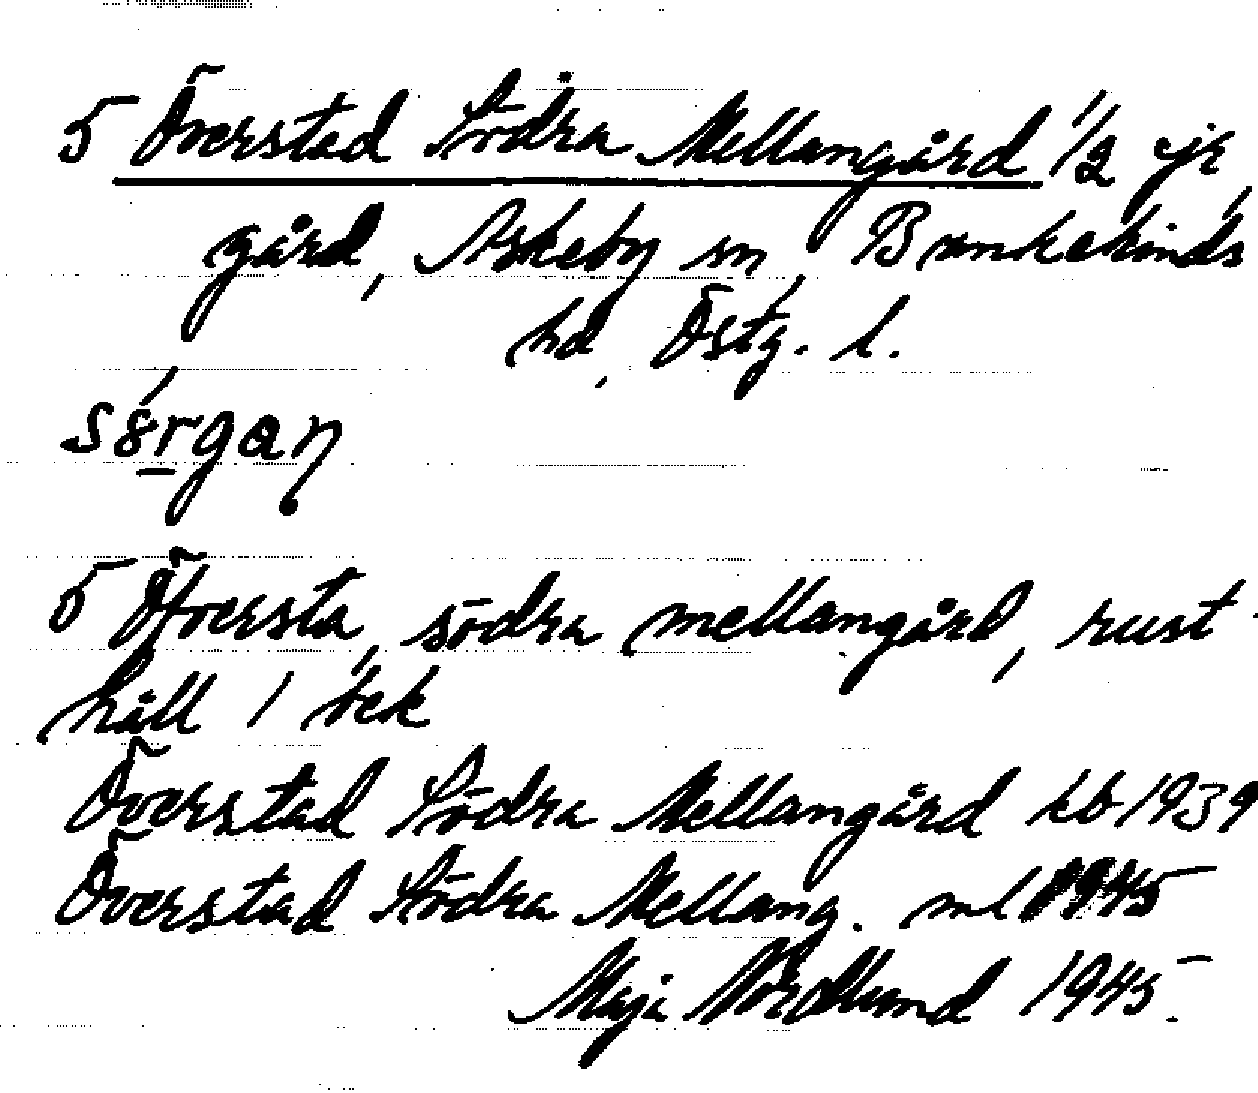 5 Överstad Södra Mellangård 1/2 jk
gård, Askeby sn, Bankekinds
hd, Östg. l.
5 Öfversta, södra mellangård, rust-
håll 1 bek
Överstad Södra Mellangård kb 1939
Överstad Södra Mellang. ml 1945
Maja Nordlund 1945.